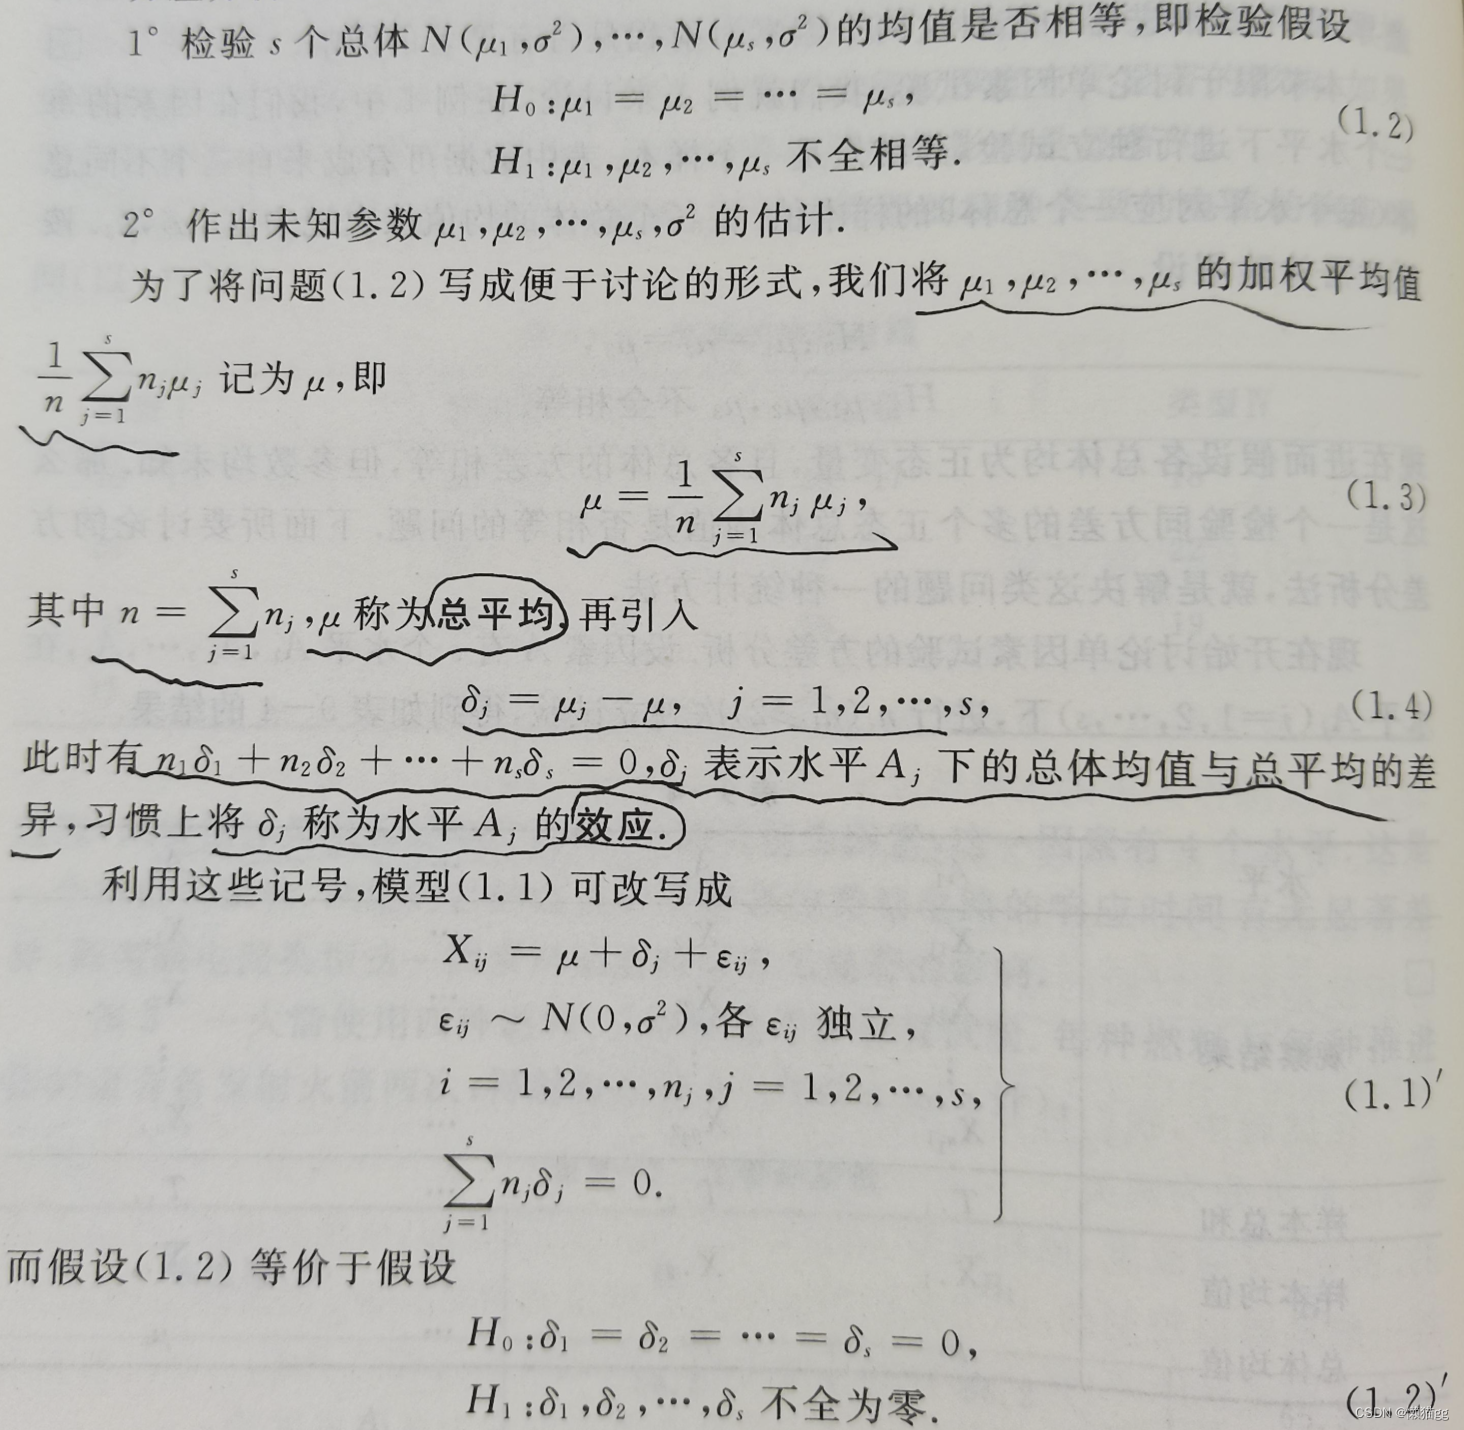 1° 检验 s 个总体 N(μ₁,σ²),…,N(μₛ,σ²)的均值是否相等,即检验假设
H₀:μ₁ = μ₂ = … = μₛ,
(1.2)
H₁:μ₁,μ₂,…,μₛ 不全相等.
2° 作出未知参数 μ₁,μ₂,…,μₛ,σ² 的估计.
为了将问题(1.2)写成便于讨论的形式,我们将 μ₁,μ₂,…,μₛ 的加权平均值
\frac{1}{n}\sum_{j=1}^{s} n_jμ_j 记为 μ,即
μ = \frac{1}{n}\sum_{j=1}^{s} n_j μ_j, (1.3)
其中 n = \sum_{j=1}^{s} n_j,μ 称为总平均. 再引入
δ_j = μ_j − μ, j = 1,2,…,s, (1.4)
此时有 n₁δ₁ + n₂δ₂ + … + nₛδₛ = 0,δ_j 表示水平 A_j 下的总体均值与总平均的差
异,习惯上将 δ_j 称为水平 A_j 的效应.
利用这些记号,模型(1.1)可改写成
X_{ij} = μ + δ_j + ε_{ij},
ε_{ij} ~ N(0,σ²),各 ε_{ij} 独立,
i = 1,2,…,n_j,j = 1,2,…,s,
(1.1)′
\sum_{j=1}^{s} n_jδ_j = 0.
而假设(1.2)等价于假设
H₀:δ₁ = δ₂ = … = δₛ = 0,
H₁:δ₁,δ₂,…,δₛ 不全为零. (1.2)′
CSDN @懒猫gg